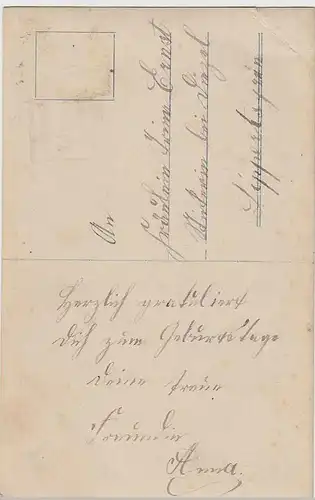 An
Fräulein Irma Ernst
bei
Herzlich gratuliert
Dich zum Geburtstage
Deine treue
Freundin
Anna.